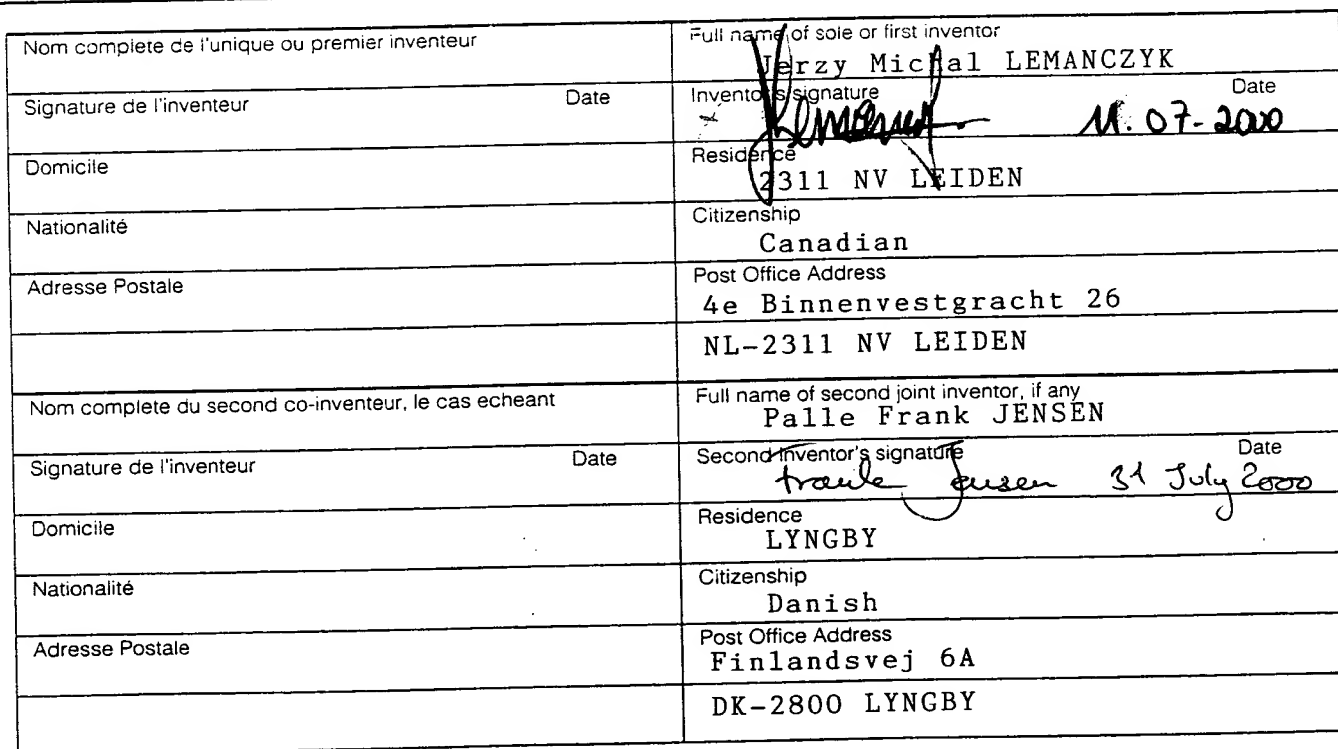 Nom complete de l'unique ou premier inventeur
Full name of sole or first inventor
Jerzy Michal LEMANCZYK
Signature de l'inventeur Date
Inventor's signature Date
11. 07-2000
Domicile
Residence
2311 NV LEIDEN
Nationalité
Citizenship
Canadian
Adresse Postale
Post Office Address
4e Binnenvestgracht 26
NL-2311 NV LEIDEN
Nom complete du second co-inventeur, le cas echeant
Full name of second joint inventor, if any
Palle Frank JENSEN
Signature de l'inventeur Date
Second inventor's signature Date
Frank Jensen 31 July 2000
Domicile
Residence
LYNGBY
Nationalité
Citizenship
Danish
Adresse Postale
Post Office Address
Finlandsvej 6A
DK-2800 LYNGBY